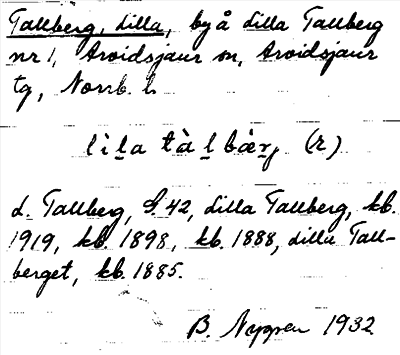 Tallberg, Lilla, byå Lilla Tallberg
nr 1, Arvidsjaur sn, Arvidsjaur
tg, Norrb. l.
lìl̲a tàl̲bær̲j (r)
L. Tallberg, G. 42, Lilla Tallberg, kb.
1919, kb. 1898, kb. 1888, Lilla Tall-
berget, kb. 1885.
B. Nygren 1932